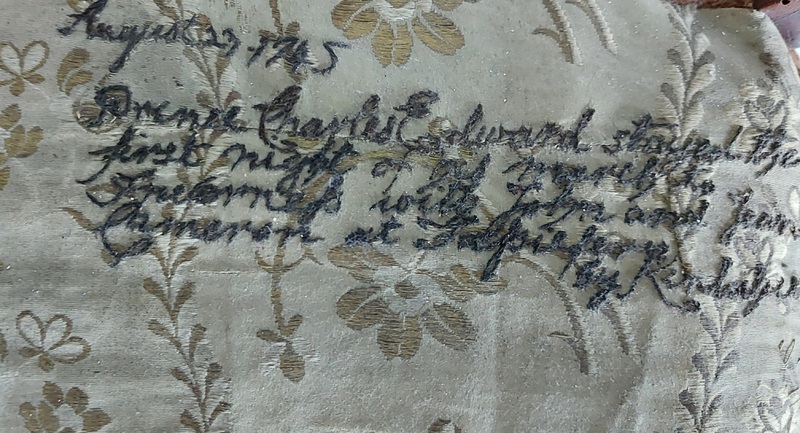 August 23 1745
Prince Charles Edward stayed the
first night of his march to
with John and
Cameron at Fassiefern
by Kinlochiel